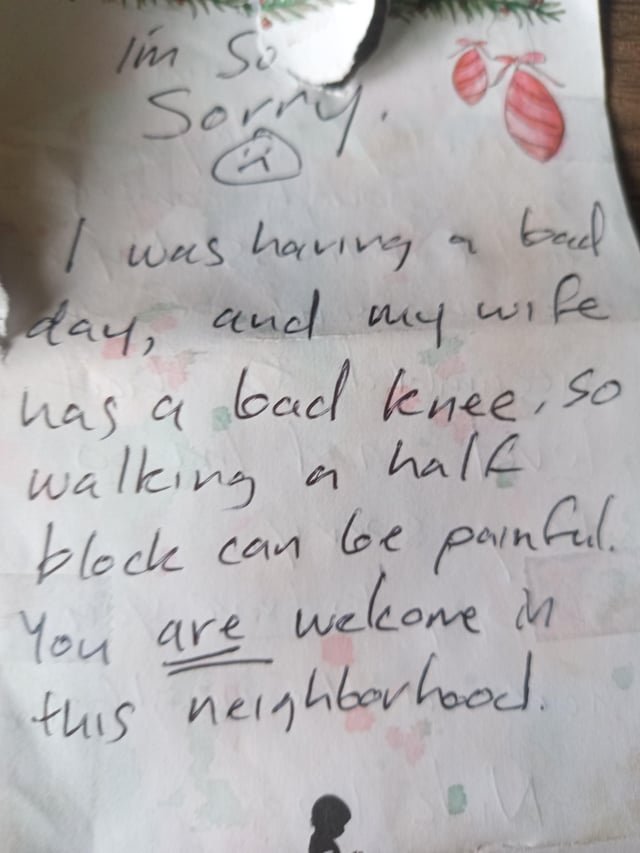 I'm So
Sorry.
I was having a bad
day, and my wife
has a bad knee, so
walking a half
block can be painful.
You are welcome in
this neighborhood.